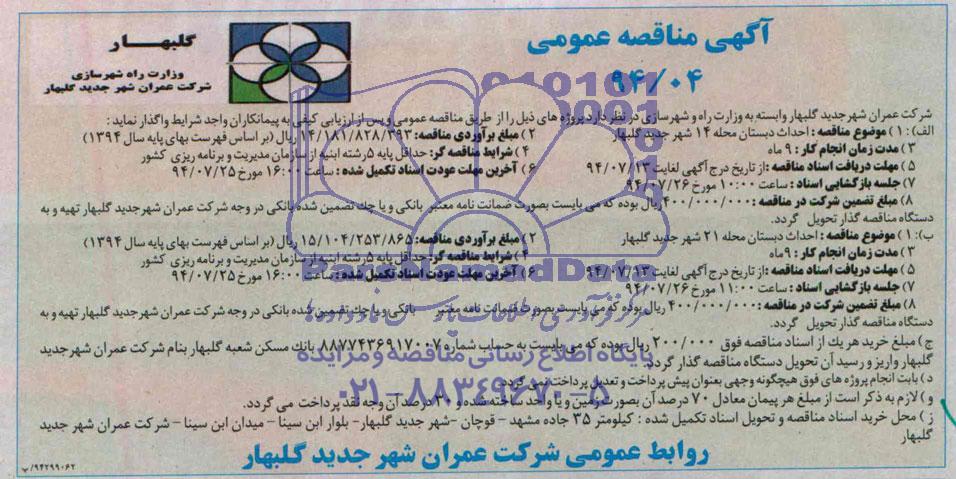 آگهی مناقصه عمومی
۹۴/۰۴
گلبهار
وزارت راه شهرسازی
شرکت عمران شهر جدید گلبهار
شرکت عمران شهر جدید گلبهار وابسته به وزارت راه و شهرسازی در نظر دارد پروژه های ذیل را از طریق مناقصه عمومی و پس از ارزیابی کیفی به پیمانکاران واجد شرایط واگذار نماید :
الف) : ۱) موضوع مناقصه : احداث دبستان محله ۱۴ شهر جدید گلبهار ۲) مبلغ برآوردی مناقصه: ۱۴/۱۸۱/۸۲۸/۳۹۳ ریال (بر اساس فهرست بهای پایه سال ۱۳۹۴)
۳) مدت زمان انجام کار : ۹ ماه ۴) شرایط مناقصه گر: حداقل پایه ۵ رشته ابنیه از سازمان مدیریت و برنامه ریزی کشور
۵) مهلت دریافت اسناد مناقصه :از تاریخ درج آگهی لغایت ۹۴/۰۷/۱۳ ۶) آخرین مهلت عودت اسناد تکمیل شده : ساعت ۱۶:۰۰ مورخ ۹۴/۰۷/۲۵
۷) جلسه بازگشایی اسناد : ساعت ۱۰:۰۰ مورخ ۹۴/۰۷/۲۶
۸) مبلغ تضمین شرکت در مناقصه : ۴۰۰/۰۰۰/۰۰۰ ریال بوده که می بایست بصورت ضمانت نامه معتبر بانکی و یا چک تضمین شده بانکی در وجه شرکت عمران شهر جدید گلبهار تهیه و به
دستگاه مناقصه گذار تحویل گردد.
ب): ۱) موضوع مناقصه : احداث دبستان محله ۲۱ شهر جدید گلبهار ۲) مبلغ برآوردی مناقصه: ۱۵/۱۰۴/۲۵۳/۸۶۵ ریال (بر اساس فهرست بهای پایه سال ۱۳۹۴)
۳) مدت زمان انجام کار : ۹ ماه ۴) شرایط مناقصه گر: حداقل پایه ۵ رشته ابنیه از سازمان مدیریت و برنامه ریزی کشور
۵) مهلت دریافت اسناد مناقصه :از تاریخ درج آگهی لغایت ۹۴/۰۷/۱۳ ۶) آخرین مهلت عودت اسناد تکمیل شده : ساعت ۱۶:۰۰ مورخ ۹۴/۰۷/۲۵
۷) جلسه بازگشایی اسناد : ساعت ۱۱:۰۰ مورخ ۹۴/۰۷/۲۶
۸) مبلغ تضمین شرکت در مناقصه : ۴۰۰/۰۰۰/۰۰۰ ریال بوده که می بایست بصورت ضمانت نامه معتبر بانکی و یا چک تضمین شده بانکی در وجه شرکت عمران شهر جدید گلبهار تهیه و به
دستگاه مناقصه گذار تحویل گردد.
ج) مبلغ خرید هر یک از اسناد مناقصه فوق ۲۰۰/۰۰۰ ریال بوده که می بایست به حساب شماره ۸۸۷۷۴۳۶۹۱۷۰۰۷ بانک مسکن شعبه گلبهار بنام شرکت عمران شهر جدید
گلبهار واریز و رسید آن تحویل دستگاه مناقصه گذار گردد.
د) بابت انجام پروژه های فوق هیچگونه وجهی بعنوان پیش پرداخت و تعدیل پرداخت نمی گردد.
و) لازم به ذکر است از مبلغ هر پیمان معادل ۷۰ درصد آن بصورت زمین و یا واحد ساخته شده و ۳۰ درصد آن وجه نقد پرداخت می گردد.
ز) محل خرید اسناد مناقصه و تحویل اسناد تکمیل شده : کیلومتر ۳۵ جاده مشهد - قوچان -شهر جدید گلبهار- بلوار ابن سینا - میدان ابن سینا - شرکت عمران شهر جدید
گلبهار
روابط عمومی شرکت عمران شهر جدید گلبهار
۹۴۲۹۹۰۶۲/پ
ParsNamadData
پایگاه اطلاع رسانی مناقصه و مزایده
۰۲۱-۸۸۳۴۹۶۷۰-۵